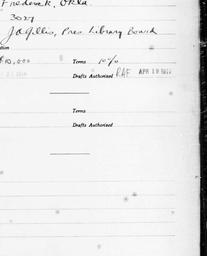 Frederick, Okla.
3027
J A Gillis, Pres Library Board
$10,000 Terms 10%
Drafts Authorized RAF APR 19 19
Terms
Drafts Authorized